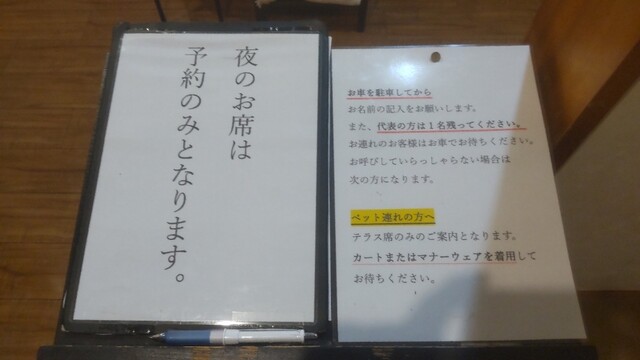 夜のお席は
予約のみとなります。
お車を駐車してから
お名前の記入をお願いします。
また、代表の方は１名残ってください。
お連れのお客様はお車でお待ちください。
お呼びしていらっしゃらない場合は
次の方になります。
ペット連れの方へ
テラス席のみのご案内となります。
カートまたはマナーウェアを着用して
お待ちください。